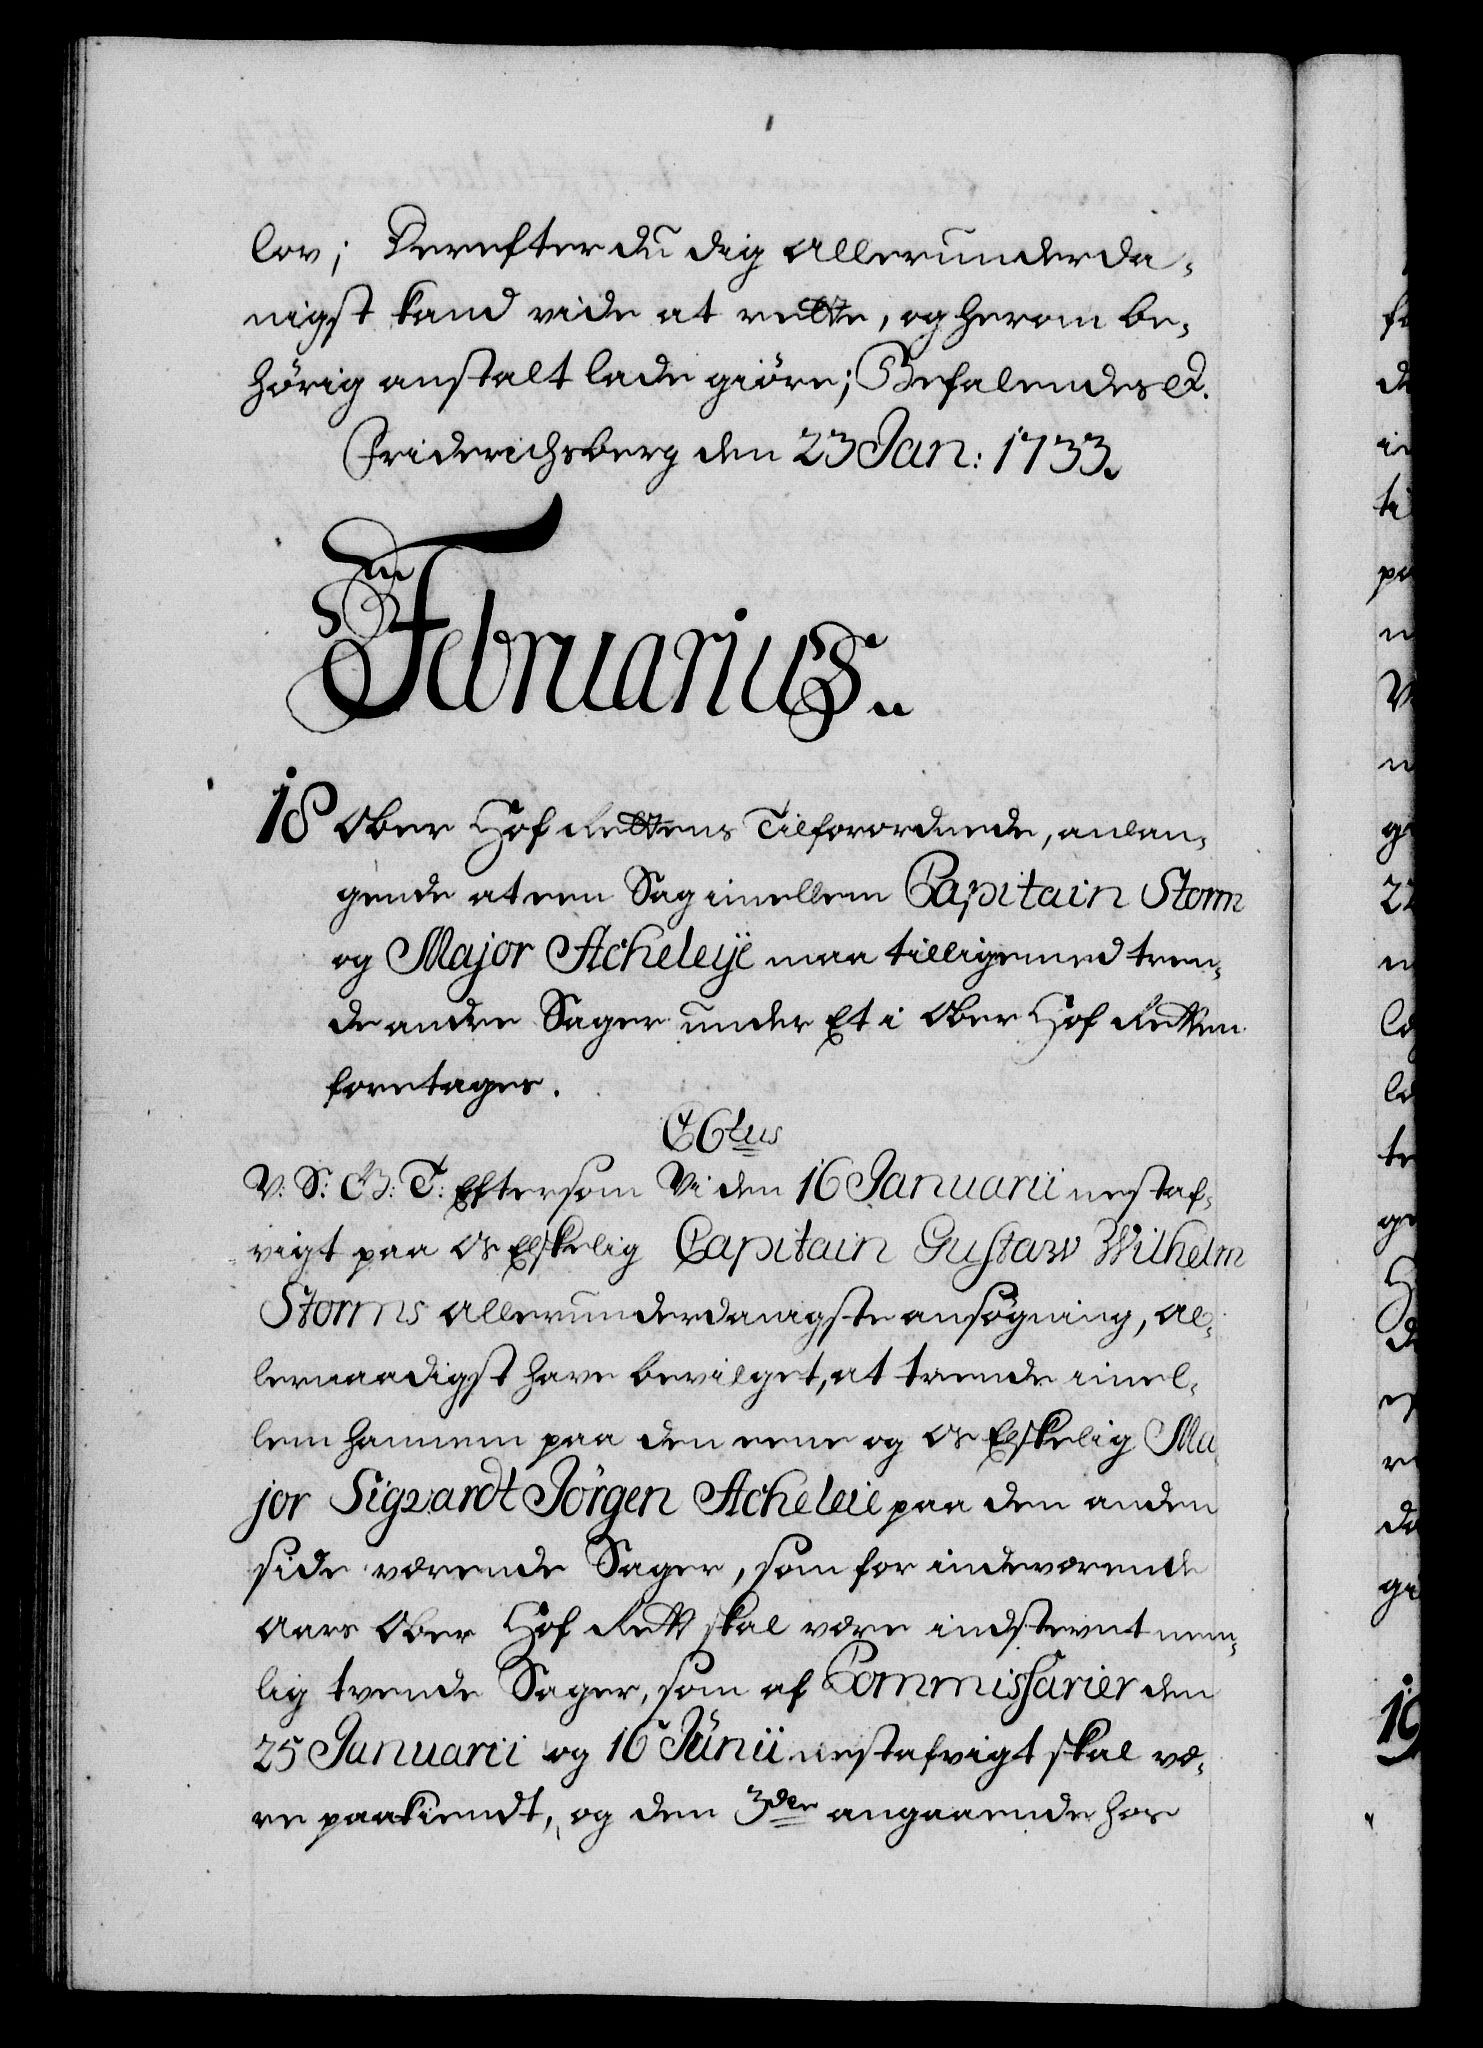 lov; Derefter du dig allerunderda-
nigst kand vide at rette, og herom be-
hörig anstalt lade giöre; Befalendes etc.
Friderichsberg den 23 Jan: 1733.
Februarius.
18 Ober Hof Rettens Tilforordnede, anlan-
gende at een Sag imellem Capitain Storm
og Major Acheleÿe maa tilligemed tren-
de andre Sager under Et i Ober Hof Retten
foretages.
C6tus
V: S: G: T: Eftersom Vi den 16 Januarii nestaf-
vigt paa os Elskelig Capitain Gustaw Wilhelm
Storms allerunderdanigste ansögning, al-
lernaadigst have bevilget, at trende imel-
lem hannem paa den eene og os Elskelig Ma-
jor Sigvardt Jörgen Acheleie paa den anden
side værende Sager, som for indeværende
Aars Ober Hof Rett skal være indstevnt nem-
lig tvende Sager, som af Commissarier den
25 Januarii og 16 Junii nestafvigt skal væ-
re paakiendt, og den 3die angaaende hos